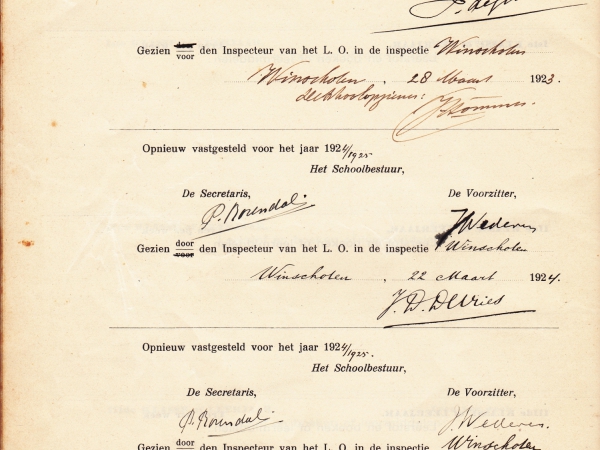 Gezien door voor den Inspecteur van het L. O. in de inspectie Winschoten
Winschoten, 28 Maart 1923.
de Schoolopziener:
Opnieuw vastgesteld voor het jaar 1924/1925
Het Schoolbestuur,
De Secretaris, De Voorzitter,
P. Borendal J. Wederes
Gezien door voor den Inspecteur van het L. O. in de inspectie Winschoten
Winschoten, 22 Maart 1924.
J. D. DeVries
Opnieuw vastgesteld voor het jaar 1924/1925.
Het Schoolbestuur,
De Secretaris, De Voorzitter,
P. Borendal J. Wederes
Gezien door den Inspecteur van het L. O. in de inspectie Winschoten